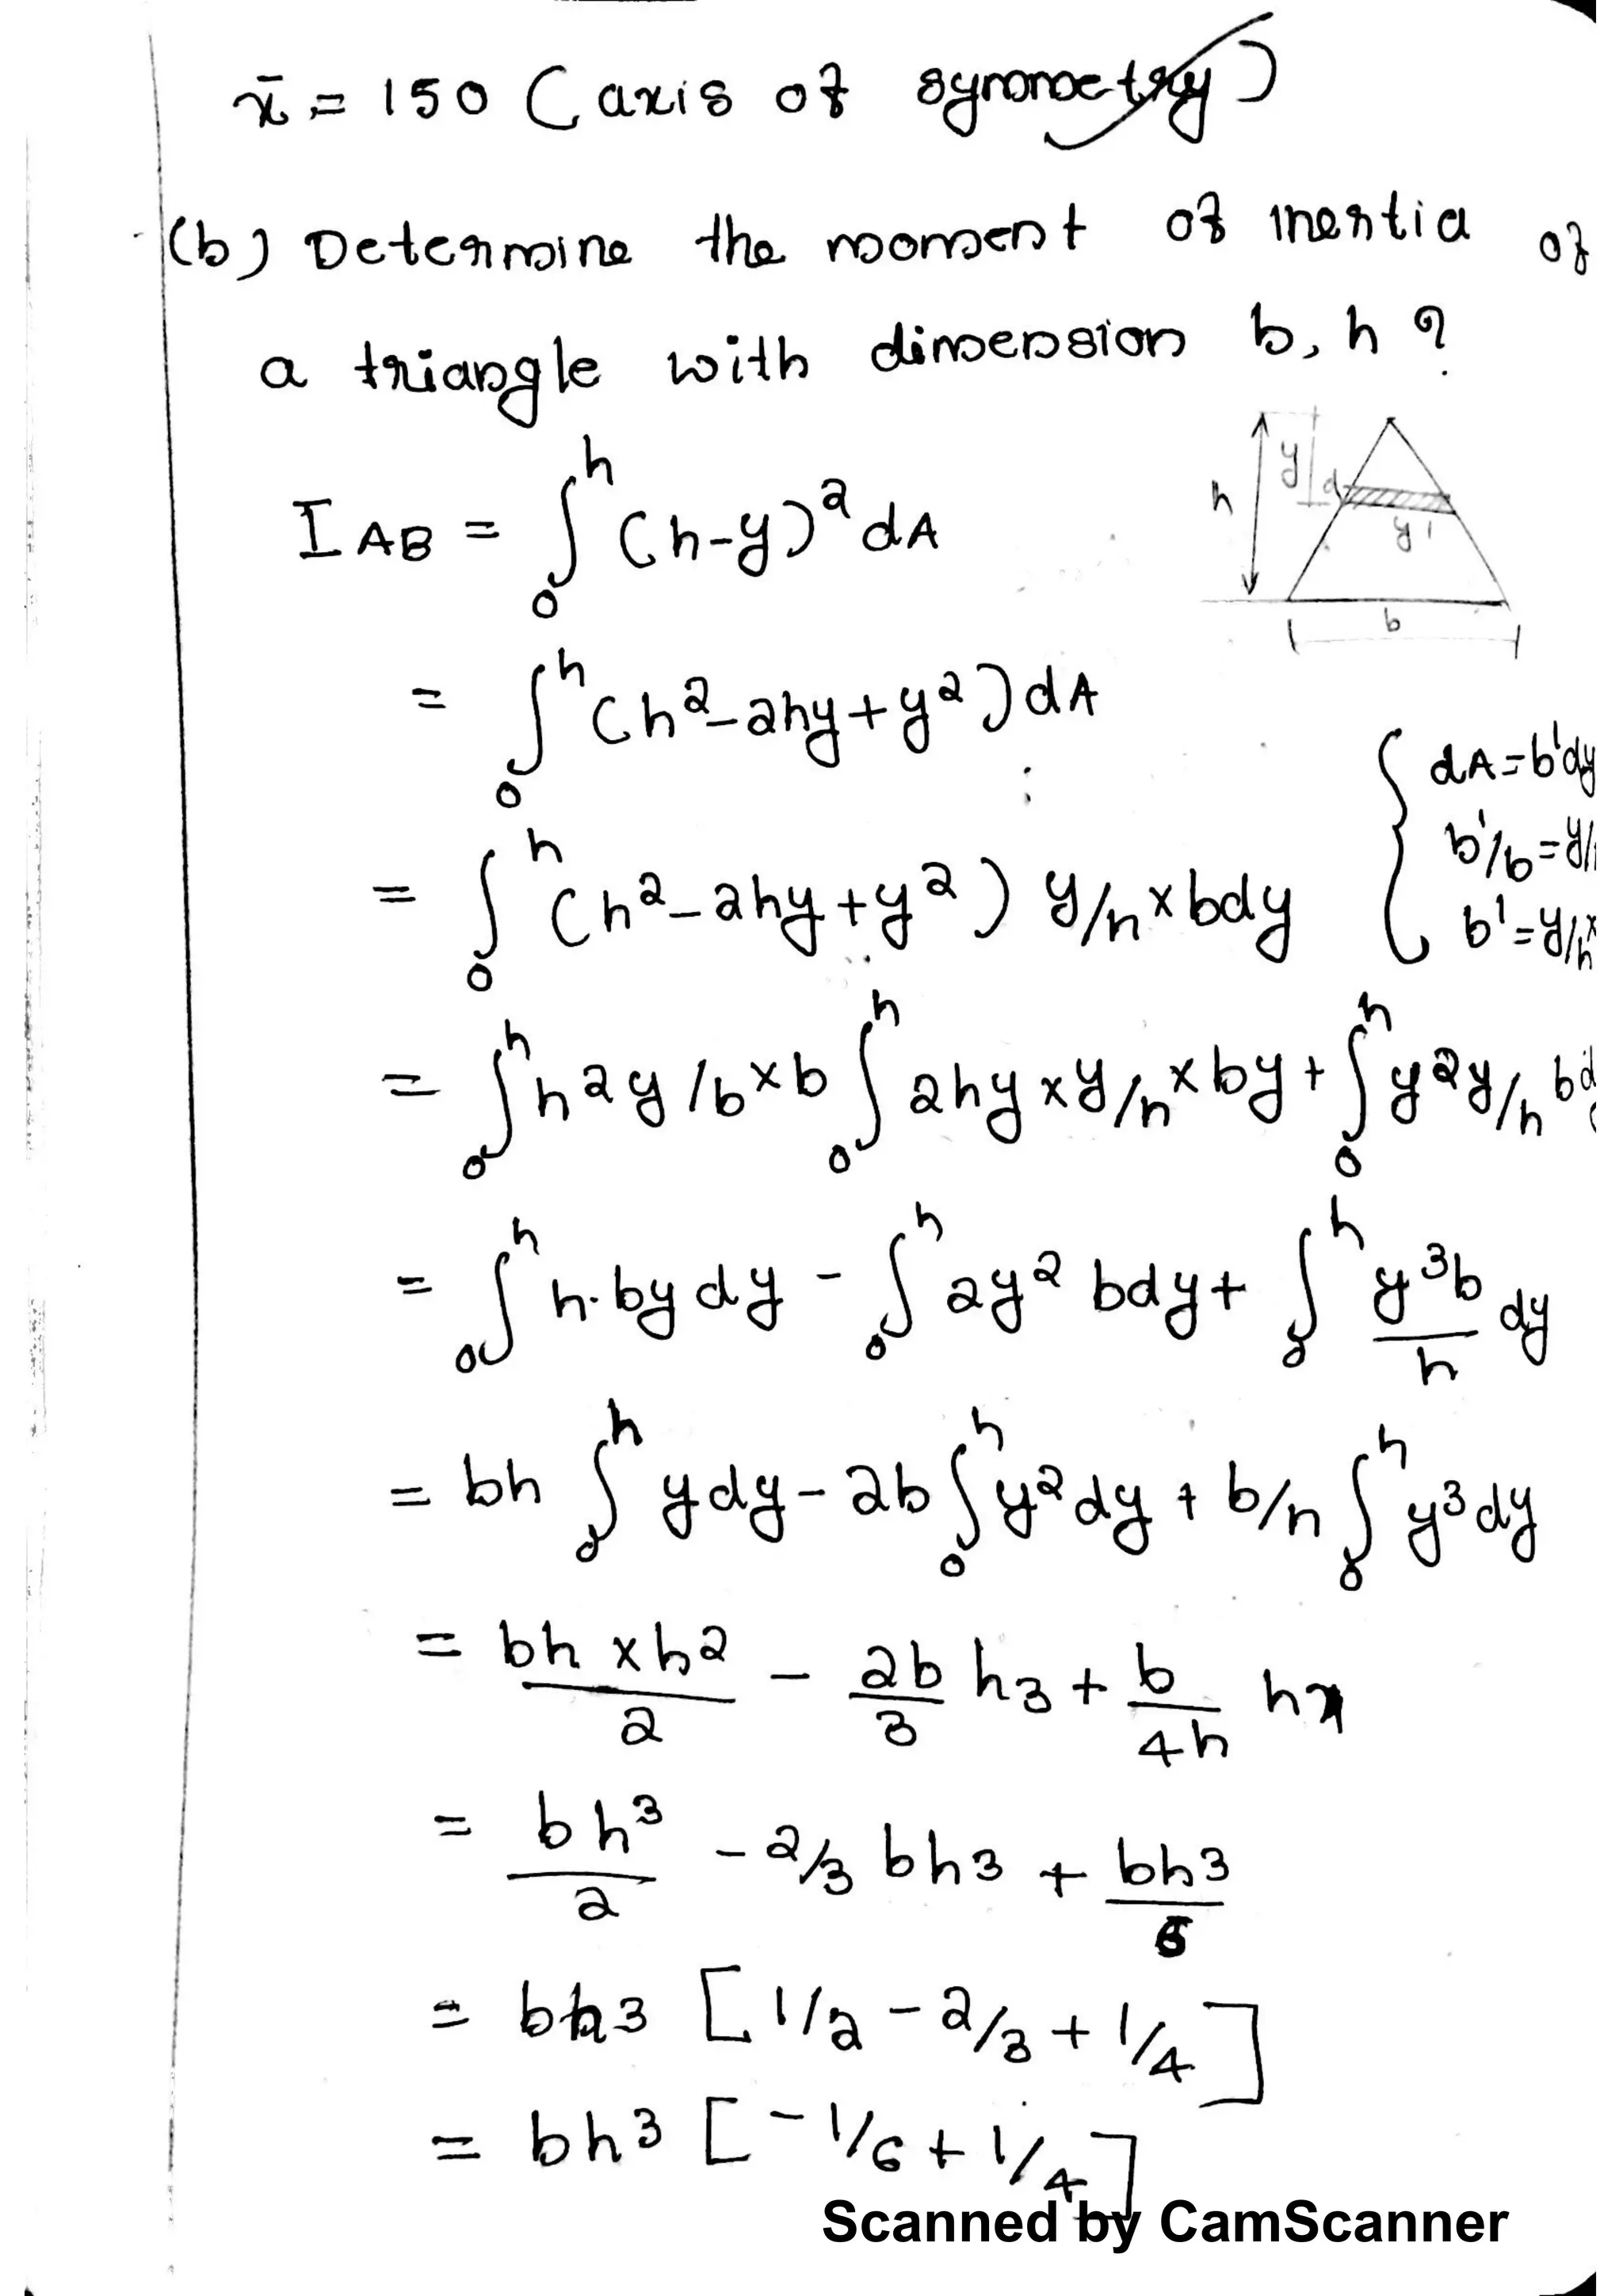 x̄ = 150 (axis of symmetry)
(b) Determine the moment of inertia of
a triangle with dimension b, h ?
h y d y'
b
I AB = ∫₀ʰ (h-y)² dA
= ∫₀ʰ (h²-2hy+y²) dA
{ dA = b'dy
b'/b = y/
b' = y/h x
= ∫₀ʰ (h²-2hy+y²) y/h x bdy
= ∫₀ʰ h2y/b x b ∫₀ʰ 2hy x y/h x by + ∫₀ʰ y2y/h bd
= ∫₀ʰ h·by dy - ∫₀ʰ 2y² bdy + ∫₀ʰ y³b/h dy
= bh ∫₀ʰ ydy - 2b ∫₀ʰ y²dy + b/h ∫₀ʰ y³dy
= bh x h2/2 - 2b/3 h3 + b/4h h
= bh³/2 - 2/3 bh3 + bh3/
= bh3 [1/2 - 2/3 + 1/4]
= bh3 [-1/6 + 1/4]
Scanned by CamScanner